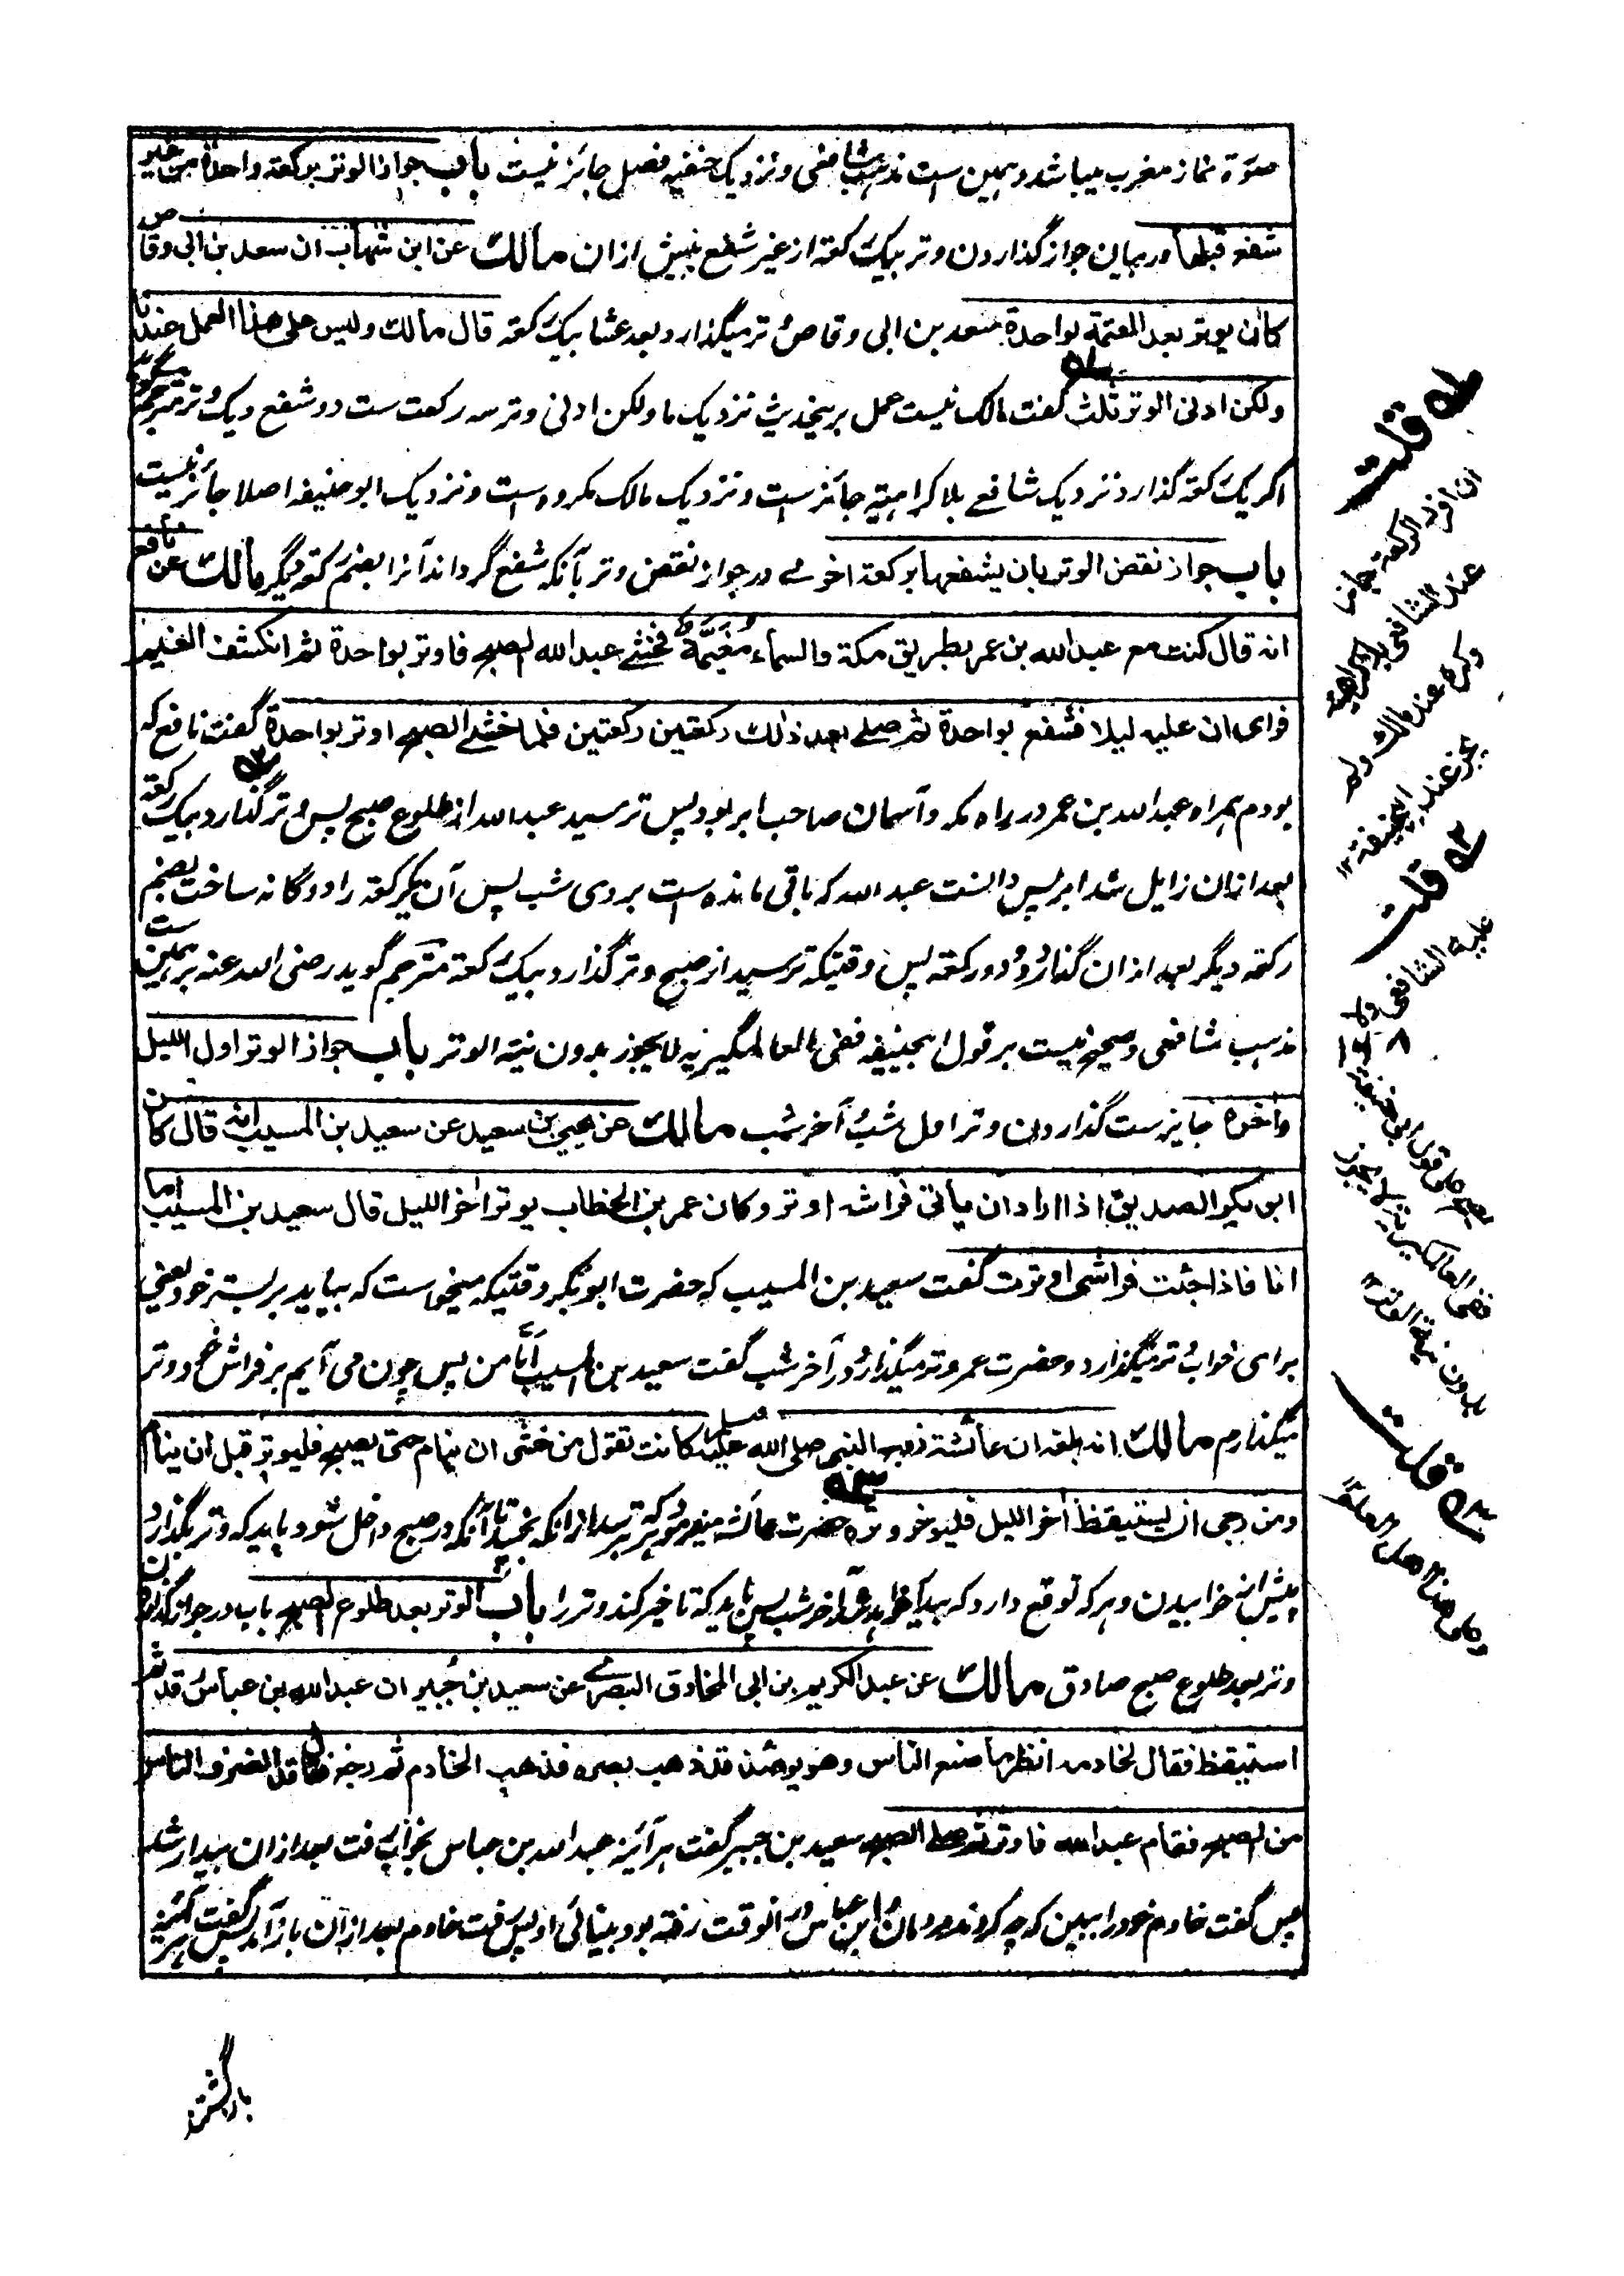 صلوٰة نماز مغرب میباشد و همین ست مذهب شافعی و نزدیک حنفیه فصل جائز نیست باب جواز الوتر برکعة واحدة من غیر
شفع قبلها در بیان جواز گذاردن وتر بیک رکعة از غیر شفع پیش ازان مالك عن ابن شهاب ان سعد بن ابی وقاص
کان یوتر بعد العتمة بواحدة سعد بن ابی وقاص وتر میگذارد بعد عشا بیک رکعة قال مالك ولیس علی هذا العمل عندنا
ولکن ادنی الوتر ثلث گفت مالک نیست عمل برینحدیث نزدیک ما ولکن ادنی وتر سه رکعت ست دو شفع و یک وتر مترجم میگوید
اگر یک رکعة گذارد نزدیک شافعے بلا کراهیة جائز ست و نزدیک مالک مکروه ست و نزدیک ابو حنیفه اصلا جائز نیست
باب جواز نقض الوتر بان یشفعها برکعة اخرے در جواز نقض وتر بآنکه شفع گرداند آنرا بضم رکعة دیگر مالك عن نافع
انه قال کنت مع عبد الله بن عمر بطریق مکة والسماء مُغَیِّمَةٌ فخشے عبد الله الصبح فاوتر بواحدة ثم انکشف الغیم
فرای ان علیه لیلا فشفع بواحدة ثم صلے بعد ذلك رکعتین رکعتین فلما خشے الصبح اوتر بواحدة گفت نافع که
بودم همراه عبد الله بن عمر در راه مکه و آسمان صاحب ابر بود پس ترسید عبد الله از طلوع صبح پس وتر گذارد بیک رکعة
بعد ازان زایل شد ابر پس دانست عبد الله که باقی مانده ست بروی شب پس آن یکرکعة را دوگانه ساخت بضم
رکعة دیگر بعد ازان گذارد دو دو رکعة پس وقتیکه ترسید از صبح وتر گذارد بیک رکعة مترجم گوید رضی الله عنه برهمین ست
مذهب شافعی و صحیح نیست بر قول ابیحنیفه ففی العالمگیریه لا یجوز بدون نیة الوتر باب جواز الوتر اول اللیل
واخره جایز ست گذاردن وتر اول شب و آخر شب مالك عن یحیی بن سعید عن سعید بن المسیب انه قال کان
ابو بکر الصدیق اذا اراد ان یاتی فراشه اوتر وکان عمر بن الخطاب یوتر اخر اللیل قال سعید بن المسیب اما
انا فاذا جئت فراشی اوترت گفت سعید بن المسیب که حضرت ابو بکر وقتیکه میخواست که بیاید بر بستر خود یعنی
برای خواب وتر میگذارد و حضرت عمر وتر میگذارد در آخر شب گفت سعید بن المسیب اما من پس چون می آیم بر فراش خود وتر
میگذارم مالك انه بلغه ان عائشة زوج النبی صلی الله علیه وسلم کانت تقول من خشی ان ینام حتی یصبح فلیوتر قبل ان ینام
ومن رجی ان یستیقظ اخر اللیل فلیوخر وتره حضرت عائشه میفرمود که هر که ترسد ازانکه بخسپد تا آنکه در صبح داخل شود باید که وتر بگذارد
پیش از خوابیدن و هر که توقع دارد که بیدار خواهد شد آخر شب پس باید که تاخیر کند وتر را باب الوتر بعد طلوع الصبح باب در جواز گذاردن
وتر بعد طلوع صبح صادق مالك عن عبد الکریم بن ابی المخارق البصرے عن سعید بن جُبیر ان عبد الله بن عباس رقد ثم
استیقظ فقال لخادمه انظر ما صنع الناس وهو یومئذ قد ذهب بصره فذهب الخادم ثم رجع فقال قد انصرف الناس
من الصبح فقام عبد الله فاوتر ثم صلے الصبح سعید بن جبیر گفت هر آئینه عبد الله بن عباس بخواب رفت بعد ازان بیدار شد
پس گفت خادم خود را ببین که چه کردند مردمان و ابن عباس در انوقت رفته بود بینائی او پس رفت خادم بعد ازان باز آمد پس گفت هر آئینه
بازگشتند
۱ قلت
ان افرد الرکعة جاز
عند الشافعی بلا کراهیة
وکره عند مالك ولم
یجز عند ابیحنیفة ۱۲
۲ قلت
علیه الشافعی ولا
یصح علی قول ابی حنیفة
ففی العالمگیریة لا یجوز
بدون نیة الوتر ۱۲
۳ قلت
وعلی هذا اهل العلم ۱۲